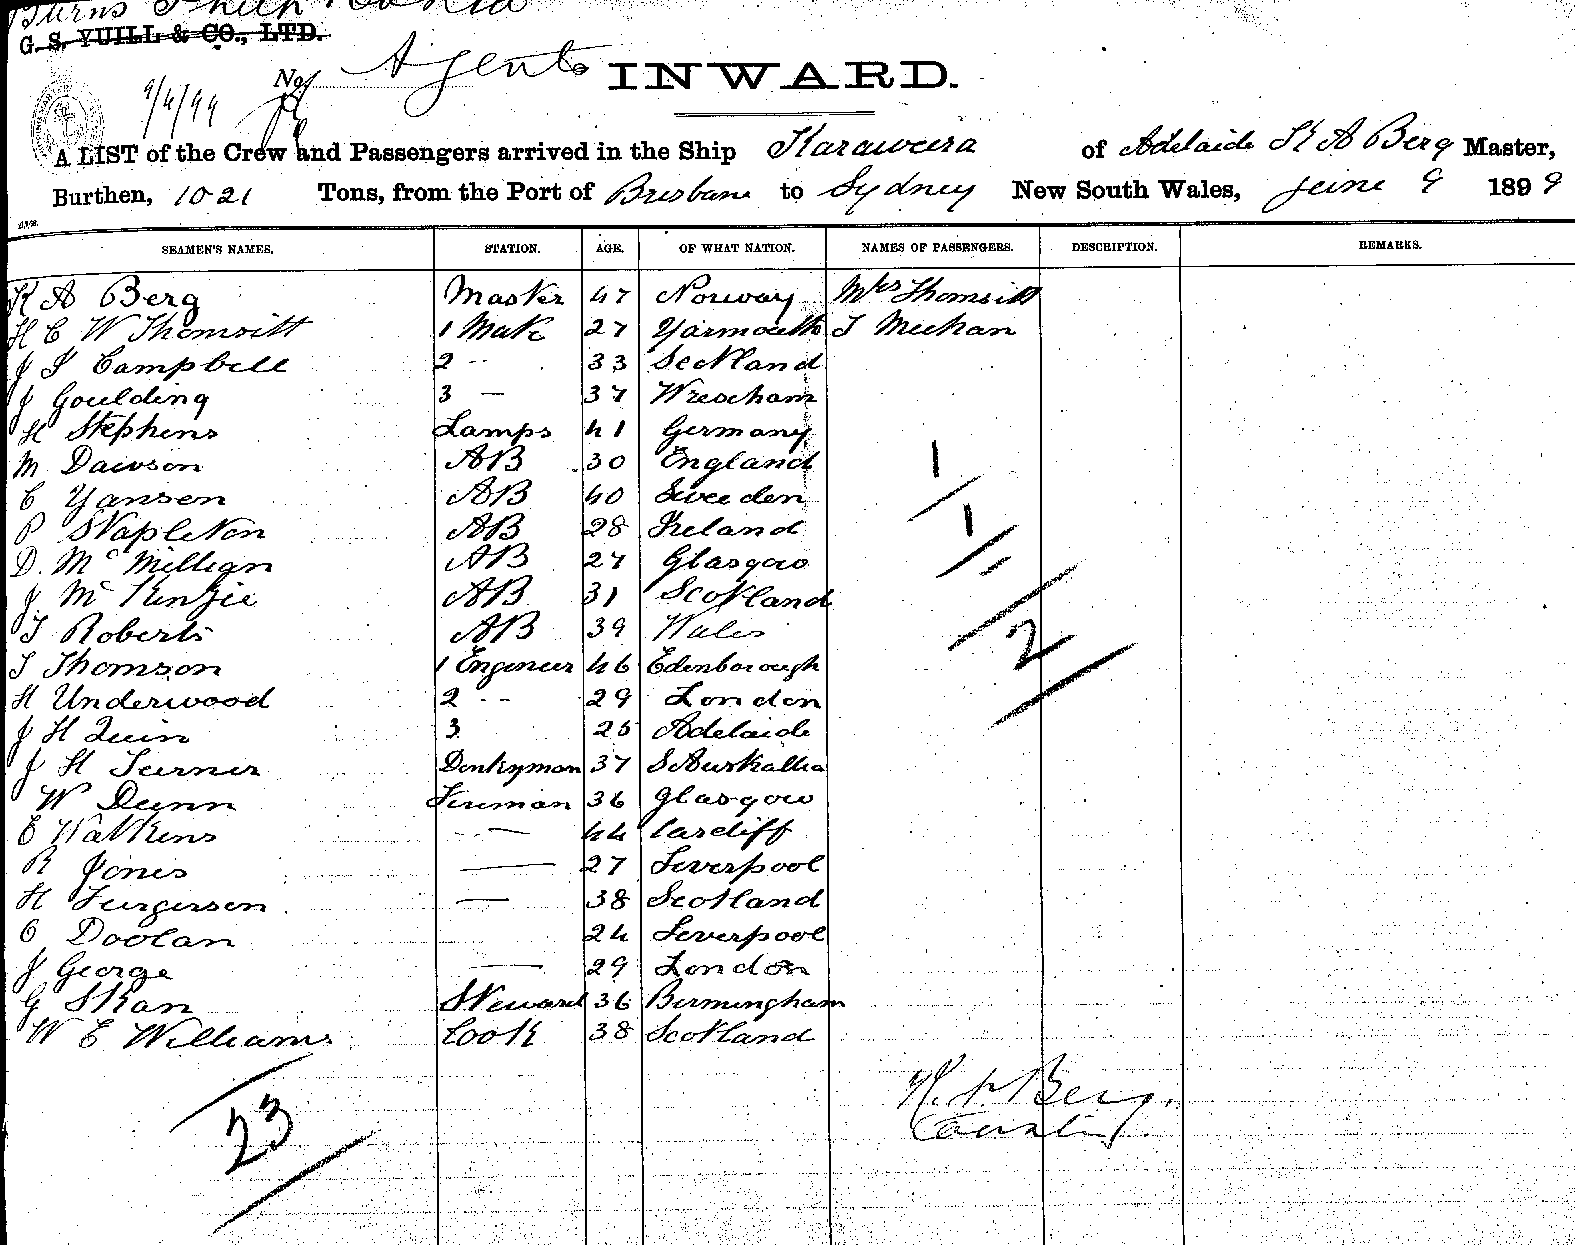 Burns Philp & Co Ltd
G. S. YUILL & CO., LTD.
Agents
No.
INWARD.
9/6/99
A LIST of the Crew and Passengers arrived in the Ship Karaweera of Adelaide K A Berg Master,
Burthen, 1021 Tons, from the Port of Brisbane to Sydney New South Wales, June 9 1899
SEAMEN'S NAMES. STATION. AGE. OF WHAT NATION. NAMES OF PASSENGERS. DESCRIPTION. REMARKS.
K A Berg Master 47 Norway Mrs Thomsitt
H C W Thomsitt 1 Mate 27 Yarmouth T Meehan
J J Campbell 2 -- 33 Scotland
J Goulding 3 — 37 Wrexham
H Stephens Lamps 41 Germany
M Dawson AB 30 England
C Yansen AB 40 Sweeden
P Stapleton AB 28 Ireland
D. McMillian AB 27 Glasgow
J. McKenzie AB 31 Scotland
T Roberts AB 39 Wales
T Thomson 1 Engineer 46 Edenborough
H Underwood 2 -- 29 London
J H Quin 3 25 Adelaide
J H Turner Donkyman 37 S Australia
W Dunn Fireman 36 Glasgow
E Watkins -- — 44 Cardiff
R Jones — 27 Liverpool
H Furgerson — 38 Scotland
O Doolan 24 Liverpool
J George — 29 London
G Skan Steward 36 Birmingham
W E Williams Cook 38 Scotland
1
1
2
23
K. A. Berg.